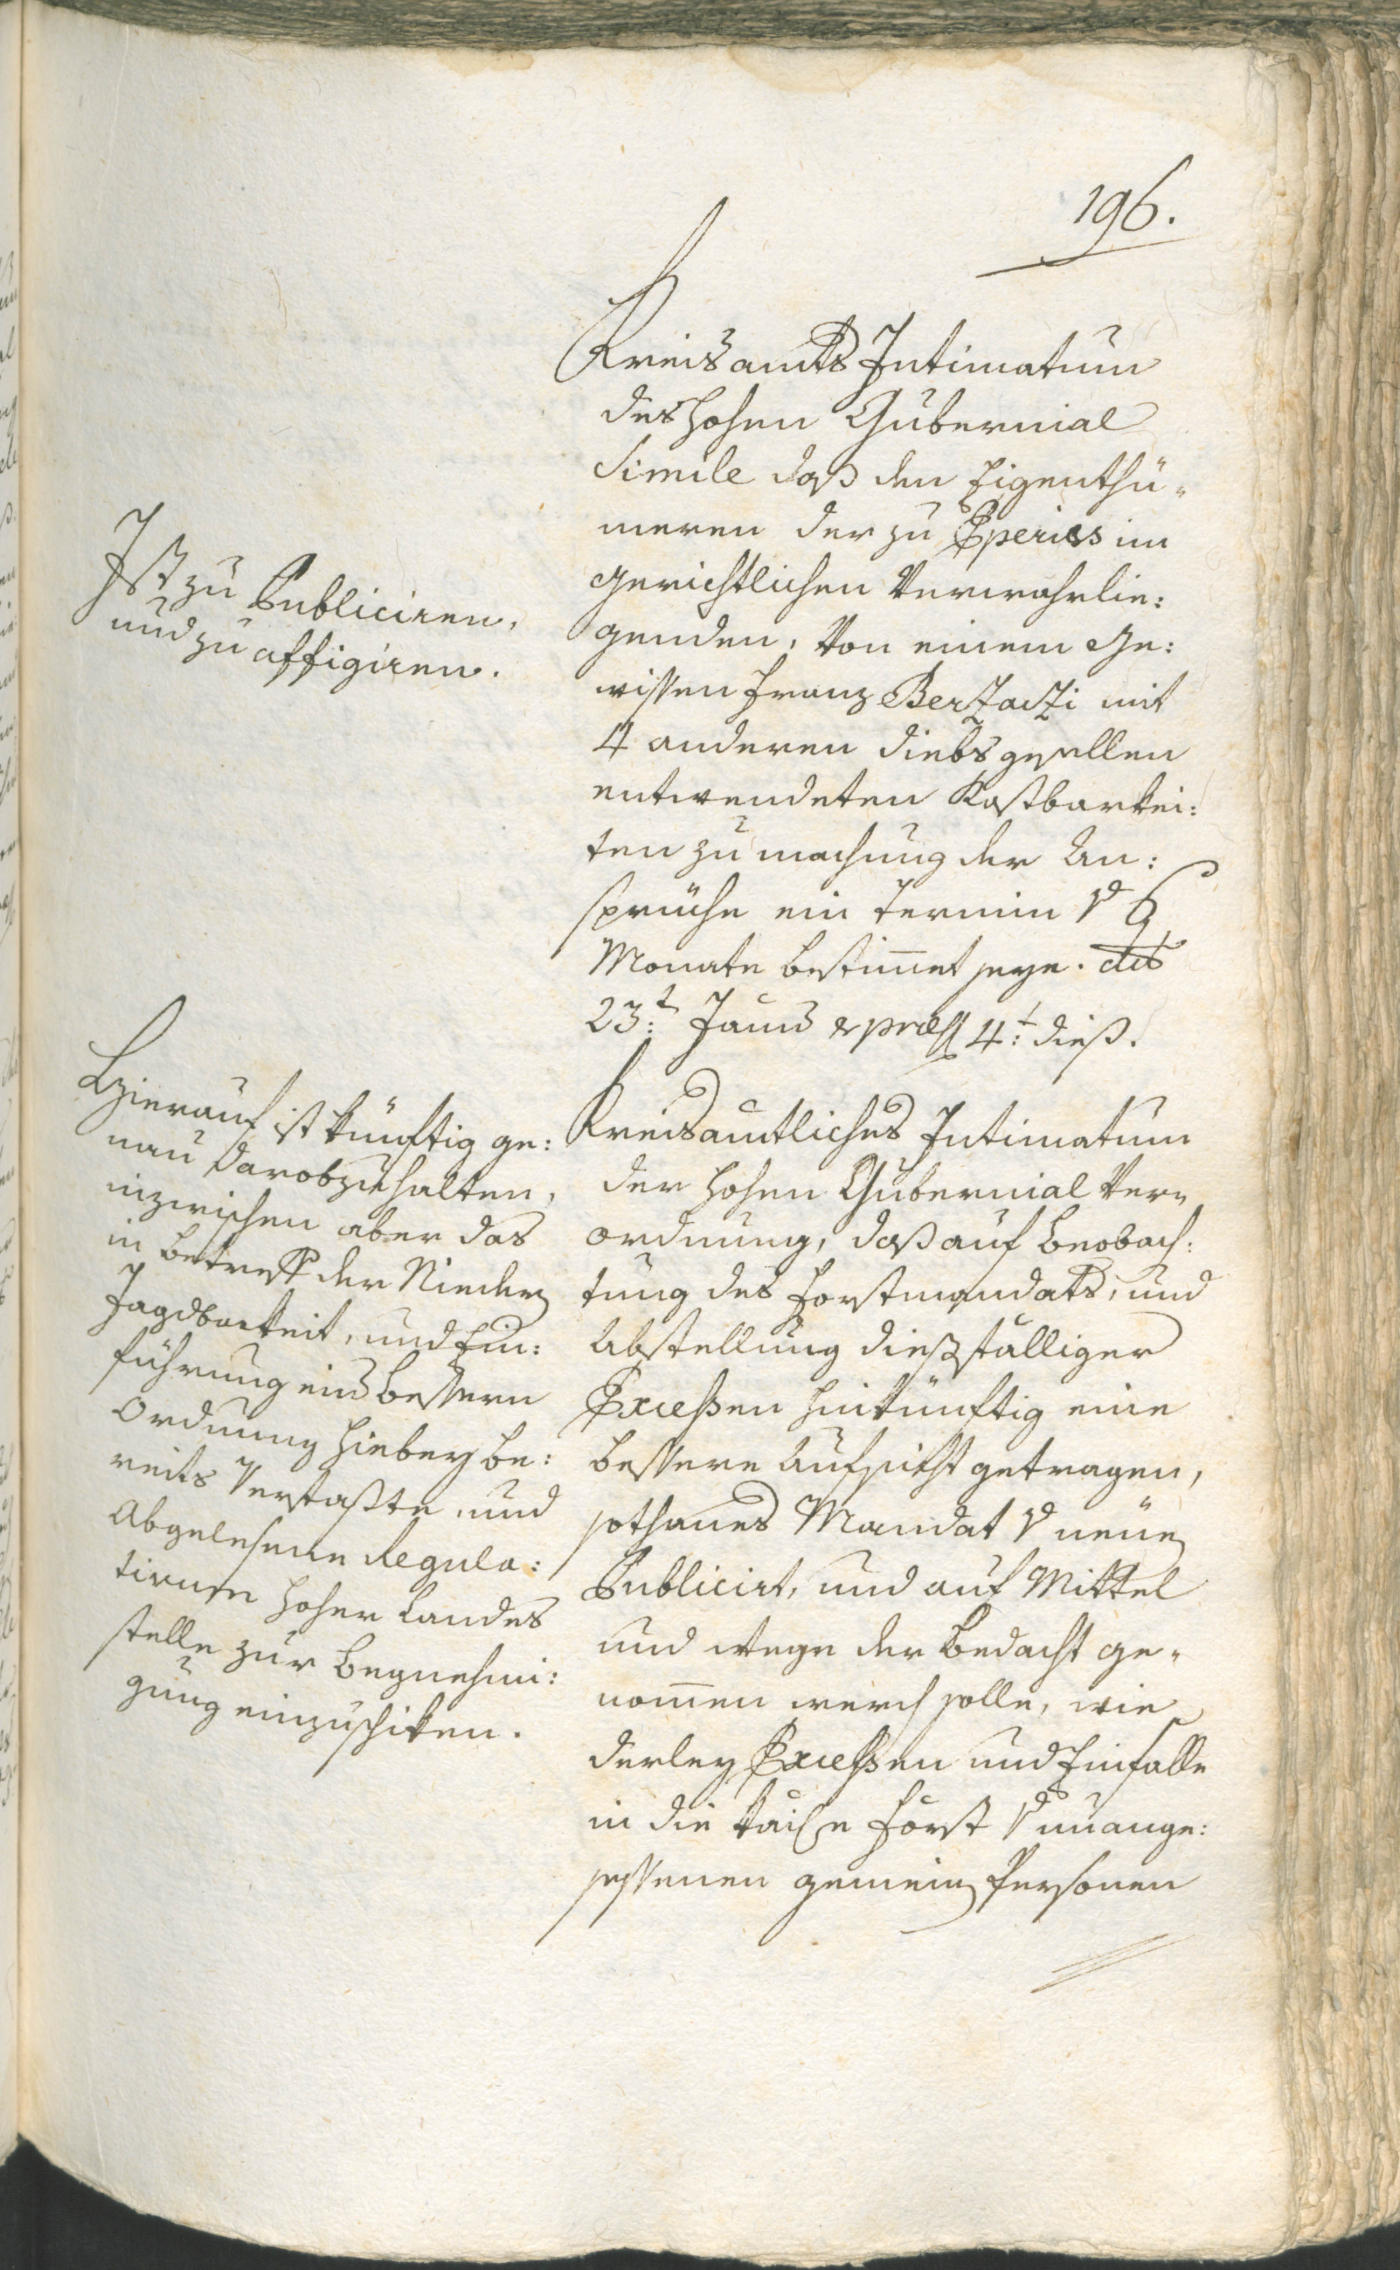 196.
Kreisamts Intimatum
des hohen Gubernial
Simile daß den Eigenthü„
meren der zu Eperies im
gerichtlichen Verwahr lie:
genden, Von einem Ge:
wissen Franz Berzaczi mit
4 anderen diebs gesellen
entwendeten Kostbarkei:
ten zu machung der An:
sprüche ein Termin v 6
Monate bestim̄et seye. dto
23t: præs 4t: dieß.
Ist zu Publiciren,
und zu affigiren.
Kreisamtliches Intimatum
der hohen Gubernial Ver„
ordnung, daß auf Beobach:
tung des Forstmandats, und
Abstellung dießfälliger
Excessen hinkünftig eine
bessere Aufsicht getragen,
sothanes Mandat v neüen
Publicirt, und auf Mittel
und wege der Bedacht ge„
nom̄en werden solle, wie
derley Excessen und Einfälle
in die Forst v unange:
sessenen gemeinen Personen
Hierauf ist künftig ge:
nau darobzuhalten,
inzwischen aber das
in betreff der Niederen
Jagdbarkeit, und Ein:
führung einer bessern
Ordnung hiebey be:
reits Verfaßte, und
Abgelesene Regula:
tivum hoher Landes
stelle zur Begnehmi:
gung einzuschiken.